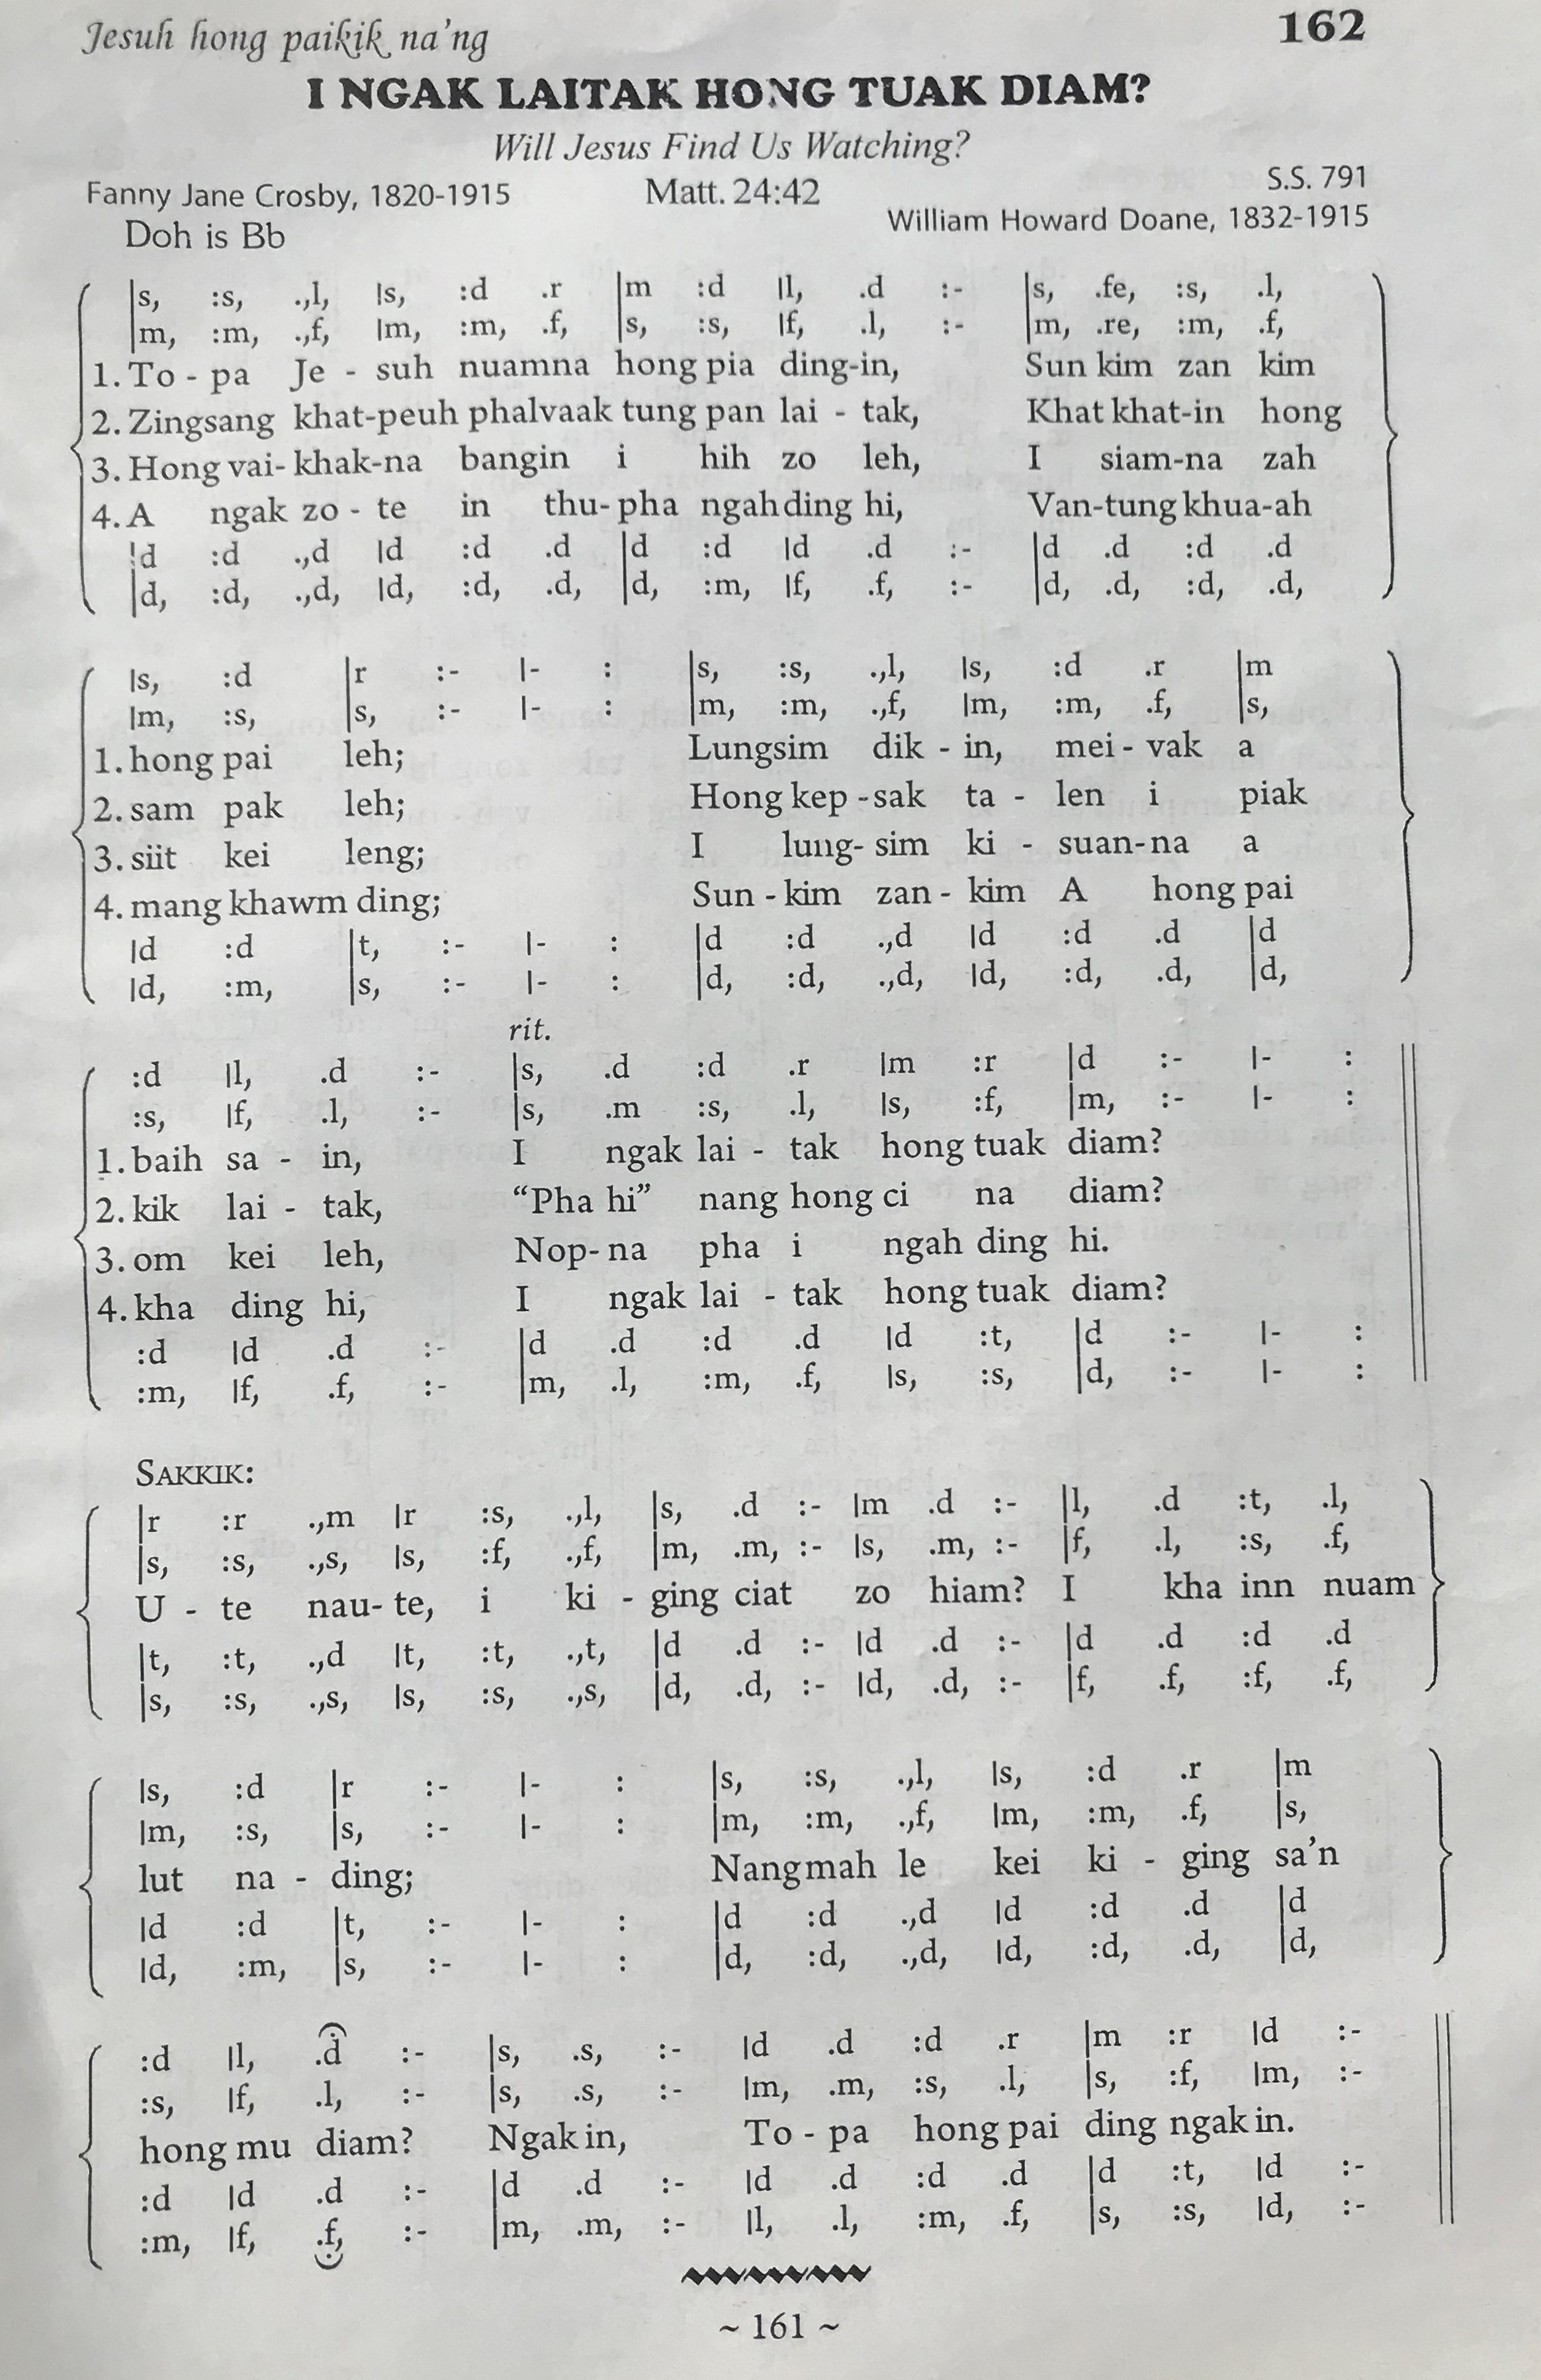 Jesuh hong paikik na'ng 162
I NGAK LAITAK HONG TUAK DIAM?
Will Jesus Find Us Watching?
Fanny Jane Crosby, 1820-1915 Matt. 24:42 S.S. 791
Doh is Bb William Howard Doane, 1832-1915
|s, :s, .,l, |s, :d .r |m :d |l, .d :- |s, .fe, :s, .l,
|m, :m, .,f, |m, :m, .f, |s, :s, |f, .l, :- |m, .re, :m, .f,
1. To - pa Je - suh nuamna hong pia ding-in, Sun kim zan kim
2. Zingsang khat-peuh phalvaak tung pan lai - tak, Khat khat-in hong
3. Hong vai- khak-na bangin i hih zo leh, I siam-na zah
4. A ngak zo - te in thu- pha ngah ding hi, Van-tung khua-ah
|d :d .,d |d :d .d |d :d |d .d :- |d .d :d .d
|d, :d, .,d, |d, :d, .d, |d, :m, |f, .f, :- |d, .d, :d, .d,
|s, :d |r :- |- : |s, :s, .,l, |s, :d .r |m
|m, :s, |s, :- |- : |m, :m, .,f, |m, :m, .f, |s,
1. hong pai leh; Lungsim dik - in, mei - vak a
2. sam pak leh; Hong kep -sak ta - len i piak
3. siit kei leng; I lung- sim ki - suan-na a
4. mang khawm ding; Sun - kim zan - kim A hong pai
|d :d |t, :- |- : |d :d .,d |d :d .d |d
|d, :m, |s, :- |- : |d, :d, .,d, |d, :d, .d, |d,
rit.
:d |l, .d :- |s, .d :d .r |m :r |d :- |- :
:s, |f, .l, :- |s, .m :s, .l, |s, :f, |m, :- |- :
1. baih sa - in, I ngak lai - tak hong tuak diam?
2. kik lai - tak, “Pha hi” nang hong ci na diam?
3. om kei leh, Nop- na pha i ngah ding hi.
4. kha ding hi, I ngak lai - tak hong tuak diam?
:d |d .d :- |d .d :d .d |d :t, |d :- |- :
:m, |f, .f, :- |m, .l, :m, .f, |s, :s, |d, :- |- :
SAKKIK:
|r :r .,m |r :s, .,l, |s, .d :- |m .d :- |l, .d :t, .l,
|s, :s, .,s, |s, :f, .,f, |m, .m, :- |s, .m, :- |f, .l, :s, .f,
U - te nau- te, i ki - ging ciat zo hiam? I kha inn nuam
|t, :t, .,d |t, :t, .,t, |d .d :- |d .d :- |d .d :d .d
|s, :s, .,s, |s, :s, .,s, |d, .d, :- |d, .d, :- |f, .f, :f, .f,
|s, :d |r :- |- : |s, :s, .,l, |s, :d .r |m
|m, :s, |s, :- |- : |m, :m, .,f, |m, :m, .f, |s,
lut na - ding; Nangmah le kei ki - ging sa'n
|d :d |t, :- |- : |d :d .,d |d :d .d |d
|d, :m, |s, :- |- : |d, :d, .,d, |d, :d, .d, |d,
:d |l, .d :- |s, .s, :- |d .d :d .r |m :r |d :-
:s, |f, .l, :- |s, .s, :- |m, .m, :s, .l, |s, :f, |m, :-
hong mu diam? Ngak in, To - pa hong pai ding ngak in.
:d |d .d :- |d .d :- |d .d :d .d |d :t, |d :-
:m, |f, .f, :- |m, .m, :- |l, .l, :m, .f, |s, :s, |d, :-
~ 161 ~